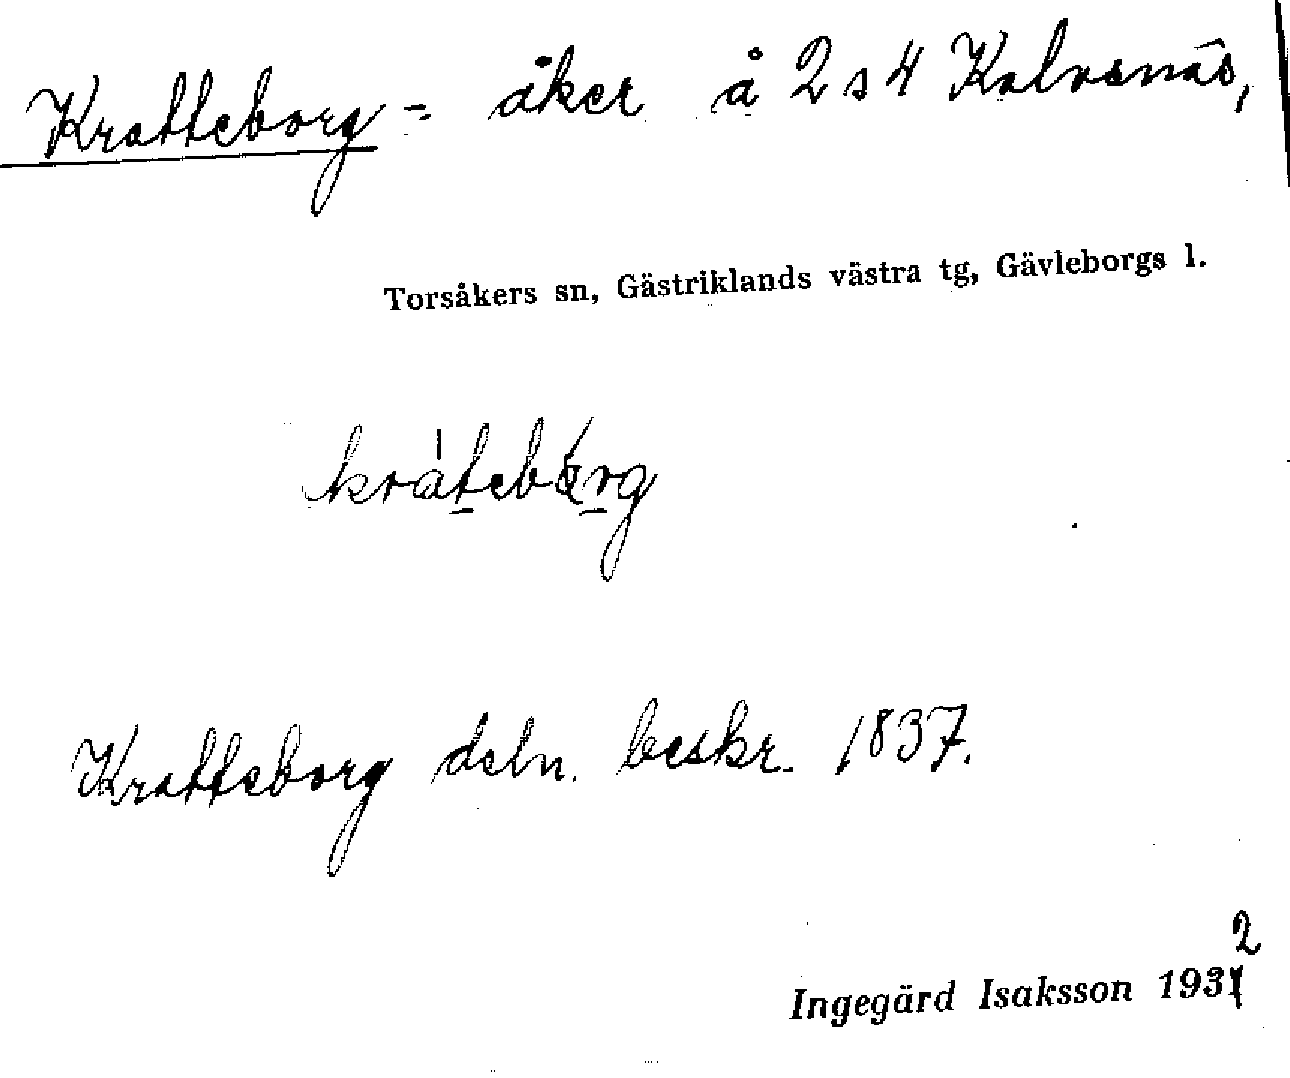 Kratteborg = åker å 2 s 4 Kalvsnäs,
Torsåkers sn, Gästriklands västra tg, Gävleborgs l.
Kratteborg deln. beskr. 1837.
2
Ingegärd Isaksson 1931